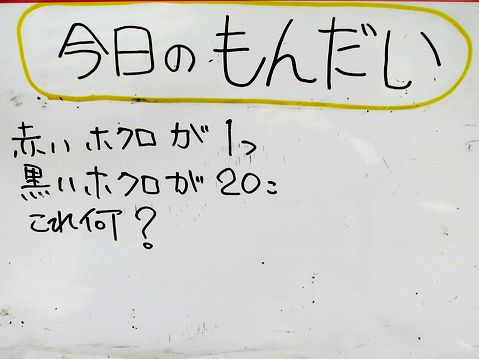 今日のもんだい
赤いホクロが1つ
黒いホクロが20こ
これ何?